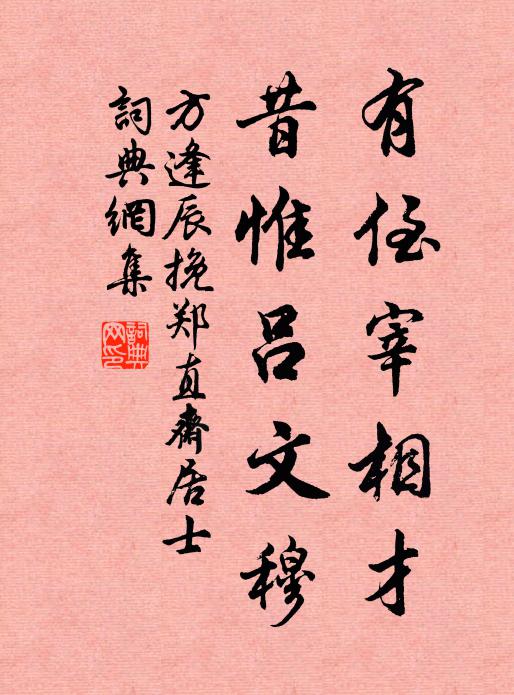 有侄宰相才
昔惟吕文穆
方逢辰挽郑直齋居士
詞典網集
詞典网印